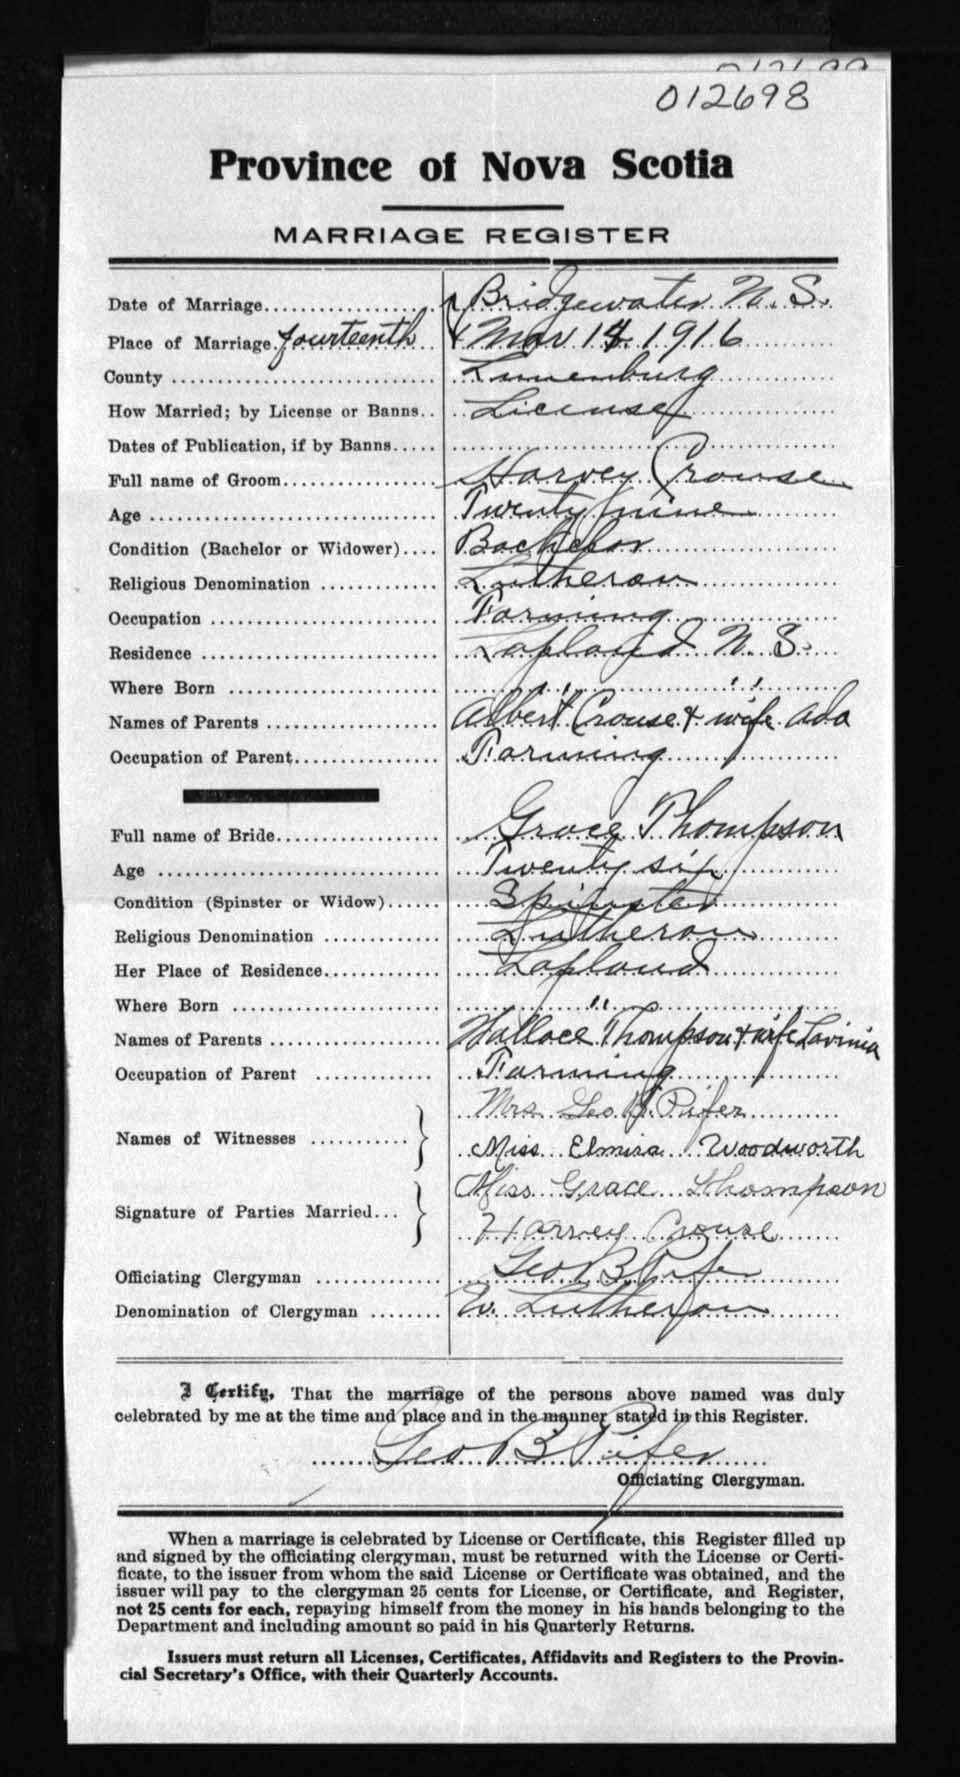 012698
Province of Nova Scotia
MARRIAGE REGISTER
Date of Marriage.................... Bridgewater N. S.
Place of Marriage. fourteenth & Mar 14. 1916
County ............................ Lunenburg
How Married; by License or Banns.. License
Dates of Publication, if by Banns.....
Full name of Groom................ Harvey Crouse
Age ............................. Twenty nine
Condition (Bachelor or Widower).... Bachelor
Religious Denomination ............ Lutheran
Occupation ....................... Farming
Residence ........................ Lapland N. S.
Where Born ..................... " "
Names of Parents ................. Albert Crouse & wife Ada
Occupation of Parent............... Farming
Full name of Bride................. Grace Thompson
Age ............................ Twenty six
Condition (Spinster or Widow)...... Spinster
Religious Denomination ............ Lutheran
Her Place of Residence............ Lapland
Where Born ..................... "
Names of Parents ................. Wallace Thompson & wife Lavinia
Occupation of Parent ............ Farming
Mrs Geo B. Pifer
Names of Witnesses ..........
Miss Elmira Woodworth
Miss Grace Thompson
Signature of Parties Married...
Harvey Crouse
Officiating Clergyman ............. Geo B. Pifer
Denomination of Clergyman ........ Ev. Lutheran
I Certify, That the marriage of the persons above named was duly
celebrated by me at the time and place and in the manner stated in this Register.
Geo B Pifer
Officiating Clergyman.
When a marriage is celebrated by License or Certificate, this Register filled up
and signed by the officiating clergyman, must be returned with the License or Certi-
ficate, to the issuer from whom the said License or Certificate was obtained, and the
issuer will pay to the clergyman 25 cents for License, or Certificate, and Register,
not 25 cents for each, repaying himself from the money in his hands belonging to the
Department and including amount so paid in his Quarterly Returns.
Issuers must return all Licenses, Certificates, Affidavits and Registers to the Provin-
cial Secretary's Office, with their Quarterly Accounts.